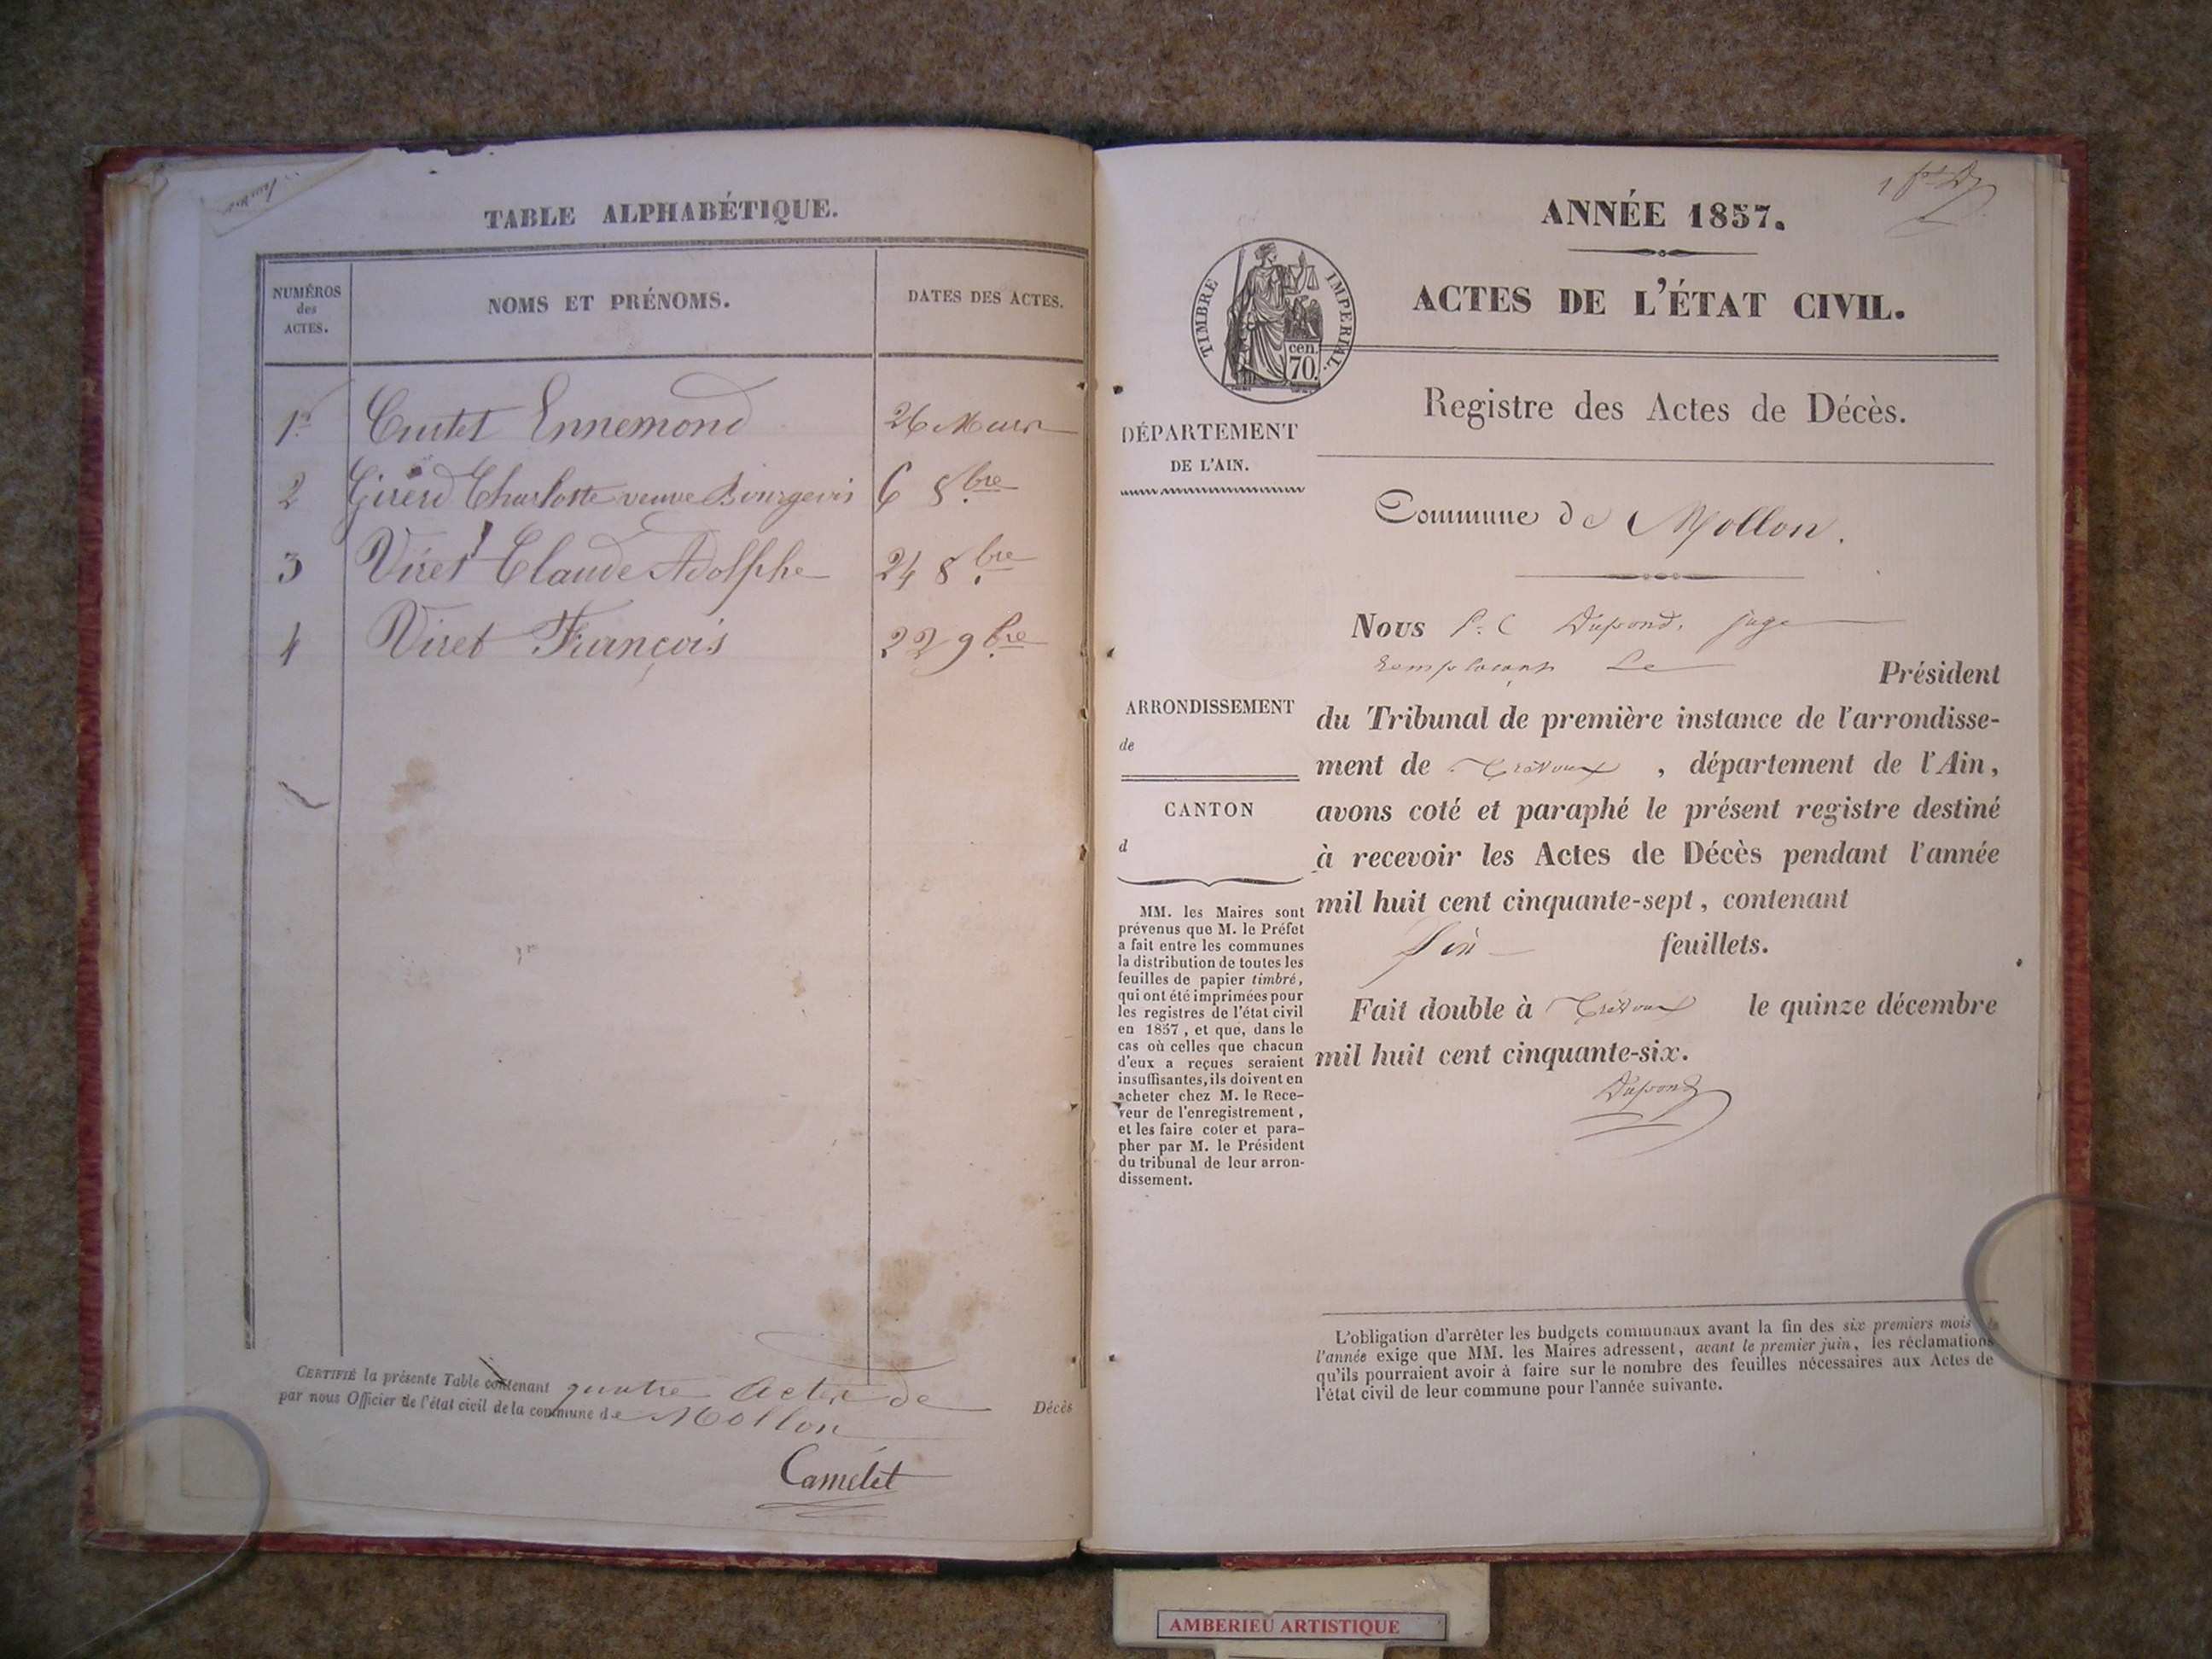 TABLE ALPHABÉTIQUE.
NUMÉROS
des
ACTES.
NOMS ET PRÉNOMS.
DATES DES ACTES.
1er Custet Ennemond 26 Mars
2 Girerd Charlotte veuve Bourgeois 6 8bre
3 Viret Claude Adolphe 24 8bre
4 Viret François 22 9bre
CERTIFIÉ la présente Table contenant quatre actes de Décès
par nous Officier de l'état civil de la commune de Mollon
Camelet
ANNÉE 1857.
TIMBRE IMPÉRIAL.
cen.
70.
ACTES DE L'ÉTAT CIVIL.
Registre des Actes de Décès.
DÉPARTEMENT
DE L'AIN.
Commune de Mollon.
Nous P. C Dupond, juge
remplaçant Le Président
du Tribunal de première instance de l'arrondisse-
ment de Trévoux, département de l'Ain,
avons coté et paraphé le présent registre destiné
à recevoir les Actes de Décès pendant l'année
mil huit cent cinquante-sept, contenant
feuillets.
Fait double à Trévoux le quinze décembre
mil huit cent cinquante-six.
Dupond
ARRONDISSEMENT
de
CANTON
d
MM. les Maires sont
prévenus que M. le Préfet
a fait entre les communes
la distribution de toutes les
feuilles de papier timbré,
qui ont été imprimées pour
les registres de l'état civil
en 1857, et que, dans le
cas où celles que chacun
d'eux a reçues seraient
insuffisantes, ils doivent en
acheter chez M. le Rece-
veur de l'enregistrement,
et les faire coter et para-
pher par M. le Président
du tribunal de leur arron-
dissement.
L'obligation d'arrêter les budgets communaux avant la fin des six premiers mois de
l'année exige que MM. les Maires adressent, avant le premier juin, les réclamations
qu'ils pourraient avoir à faire sur le nombre des feuilles nécessaires aux Actes de
l'état civil de leur commune pour l'année suivante.
AMBERIEU ARTISTIQUE